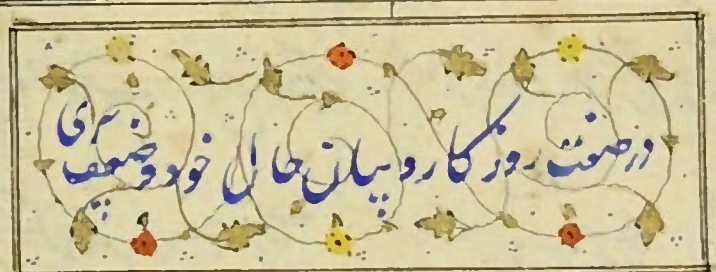 در صفت روزکار و بیان حال خود و ضعف پیری